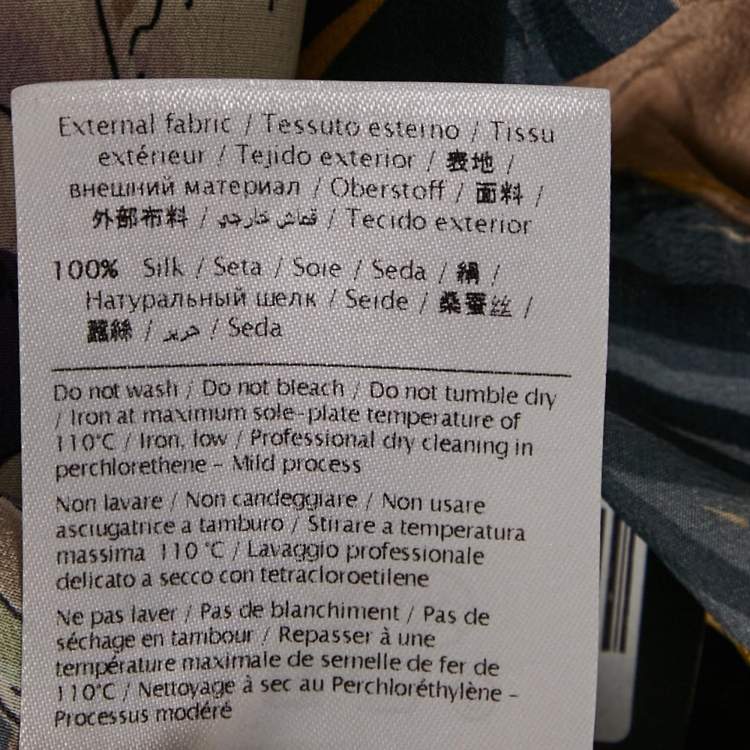 External fabric / Tessuto esterno / Tissu
extérieur / Tejido exterior / 表地 /
внешний материал / Oberstoff / 面料 /
外部布料 / قماش خارجي / Tecido exterior
100% Silk / Seta / Soie / Seda / 絹 /
Натуральный шелк / Seide / 桑蚕丝 /
蠶絲 / حرير / Seda
Do not wash / Do not bleach / Do not tumble dry
/ Iron at maximum sole-plate temperature of
110°C / Iron, low / Professional dry cleaning in
perchlorethene - Mild process
Non lavare / Non candeggiare / Non usare
asciugatrice a tamburo / Stirare a temperatura
massima 110 °C / Lavaggio professionale
delicato a secco con tetracloroetilene
Ne pas laver / Pas de blanchiment / Pas de
séchage en tambour / Repasser à une
température maximale de semelle de fer de
110°C / Nettoyage à sec au Perchloréthylène -
Processus modéré